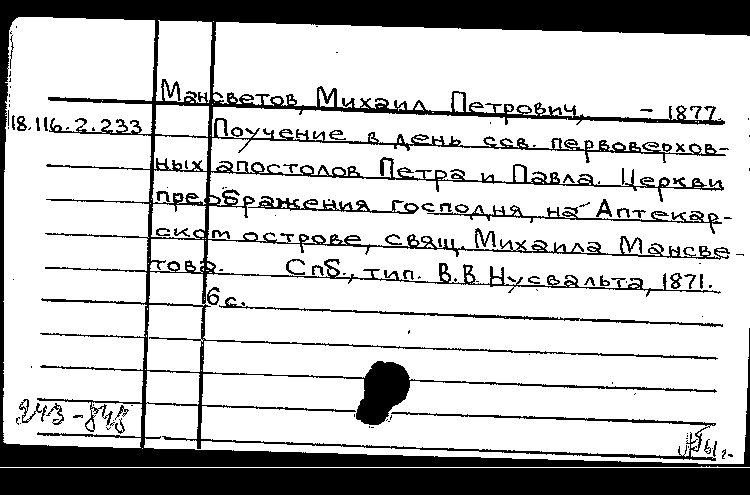 Мансветов, Михаил Петрович, - 1877.
18.116.2.233 Поучение в день ссв. первоверхов-
ных апостолов Петра и Павла. Церкви
преображения господня, на Аптекар-
ском острове, свящ. Михаила Мансве-
това. Спб., тип. В.В Нусвальта, 1871.
6 с.
243-848